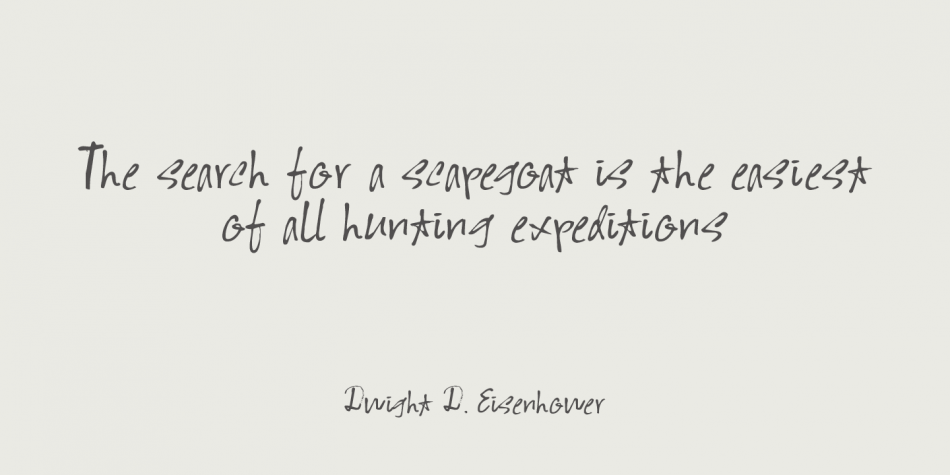 The search for a scapegoat is the easiest
of all hunting expeditions
Dwight D. Eisenhower